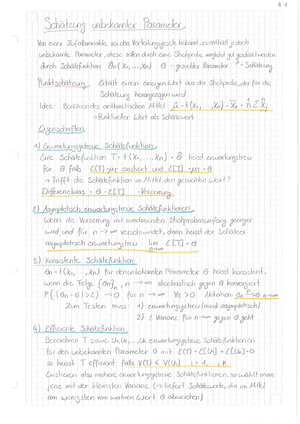 Schätzung unbekannter Parameter
Von einer Zufallsvariable sei das Verteilungsgesetz bekannt, es enthält jedoch
unbekannte Parameter, diese sollen durch eine Stichprobe möglichst gut geschätzt werden
durch Schätzfunktion θ̂n (X1, ..., Xn) θ - gesuchter Parameter ^ - Schätzung
Punktschätzung: Erhält einen einzigen Wert aus der Stichprobe, der für die
Schätzung herangezogen wird
Idee: Berechnen des arithmetischen Mittel μ̂ = t(X1, ..., Xn) = X̄n = 1/n Σ Xi
→ Punktueller Wert als Schätzwert
Eigenschaften
1) Erwartungstreue Schätzfunktion
Eine Schätzfunktion T = t(X1, ..., Xn) = θ̂ heißt erwartungstreu
für θ falls E(T) existiert und E[T] = θ
→ Trifft die Schätzfunktion im Mittel den gesuchten Wert?
Differenz bias = θ - E[T] - Verzerrung
2) Asymptotisch erwartungstreue Schätzfunktionen
Wenn die Verzerrung mit zunehmendem Stichprobenumfang geringer
wird und für n → ∞ verschwindet, dann heißt der Schätzer
asymptotisch erwartungstreu lim n→∞ E[T] = θ
3) Konsistente Schätzfunktion
θ̂n = t(X1, ..., Xn) für den unbekannten Parameter θ heißt konsistent,
wenn die Folge {θ̂n}n, n → ∞ stochastisch gegen θ konvergiert
P(|θ̂n - θ| > ε) → 0 für n → ∞ ∀ε > 0 Notation θ̂n → θ n→∞
Zum Testen muss 1) erwartungstreu (mind. asymptotisch)
2) Varianz für n→∞ gegen 0 geht
4) Effiziente Schätzfunktion
Bezeichnen T sowie U1, U2, ..., Uk erwartungstreue Schätzfunktionen
für den unbekannten Parameter θ mit E(T) = E[Ui] = θ
so heißt T effizient falls V(T) ≤ V(Ui) i = 1, ..., k
Existieren also mehrere erwartungstreue Schätzfunktionen, so wählt man
jene mit der kleinsten Varianz (→ liefert Schätzwerte, die im Mittel
am wenigsten vom wahren Wert θ abweichen)